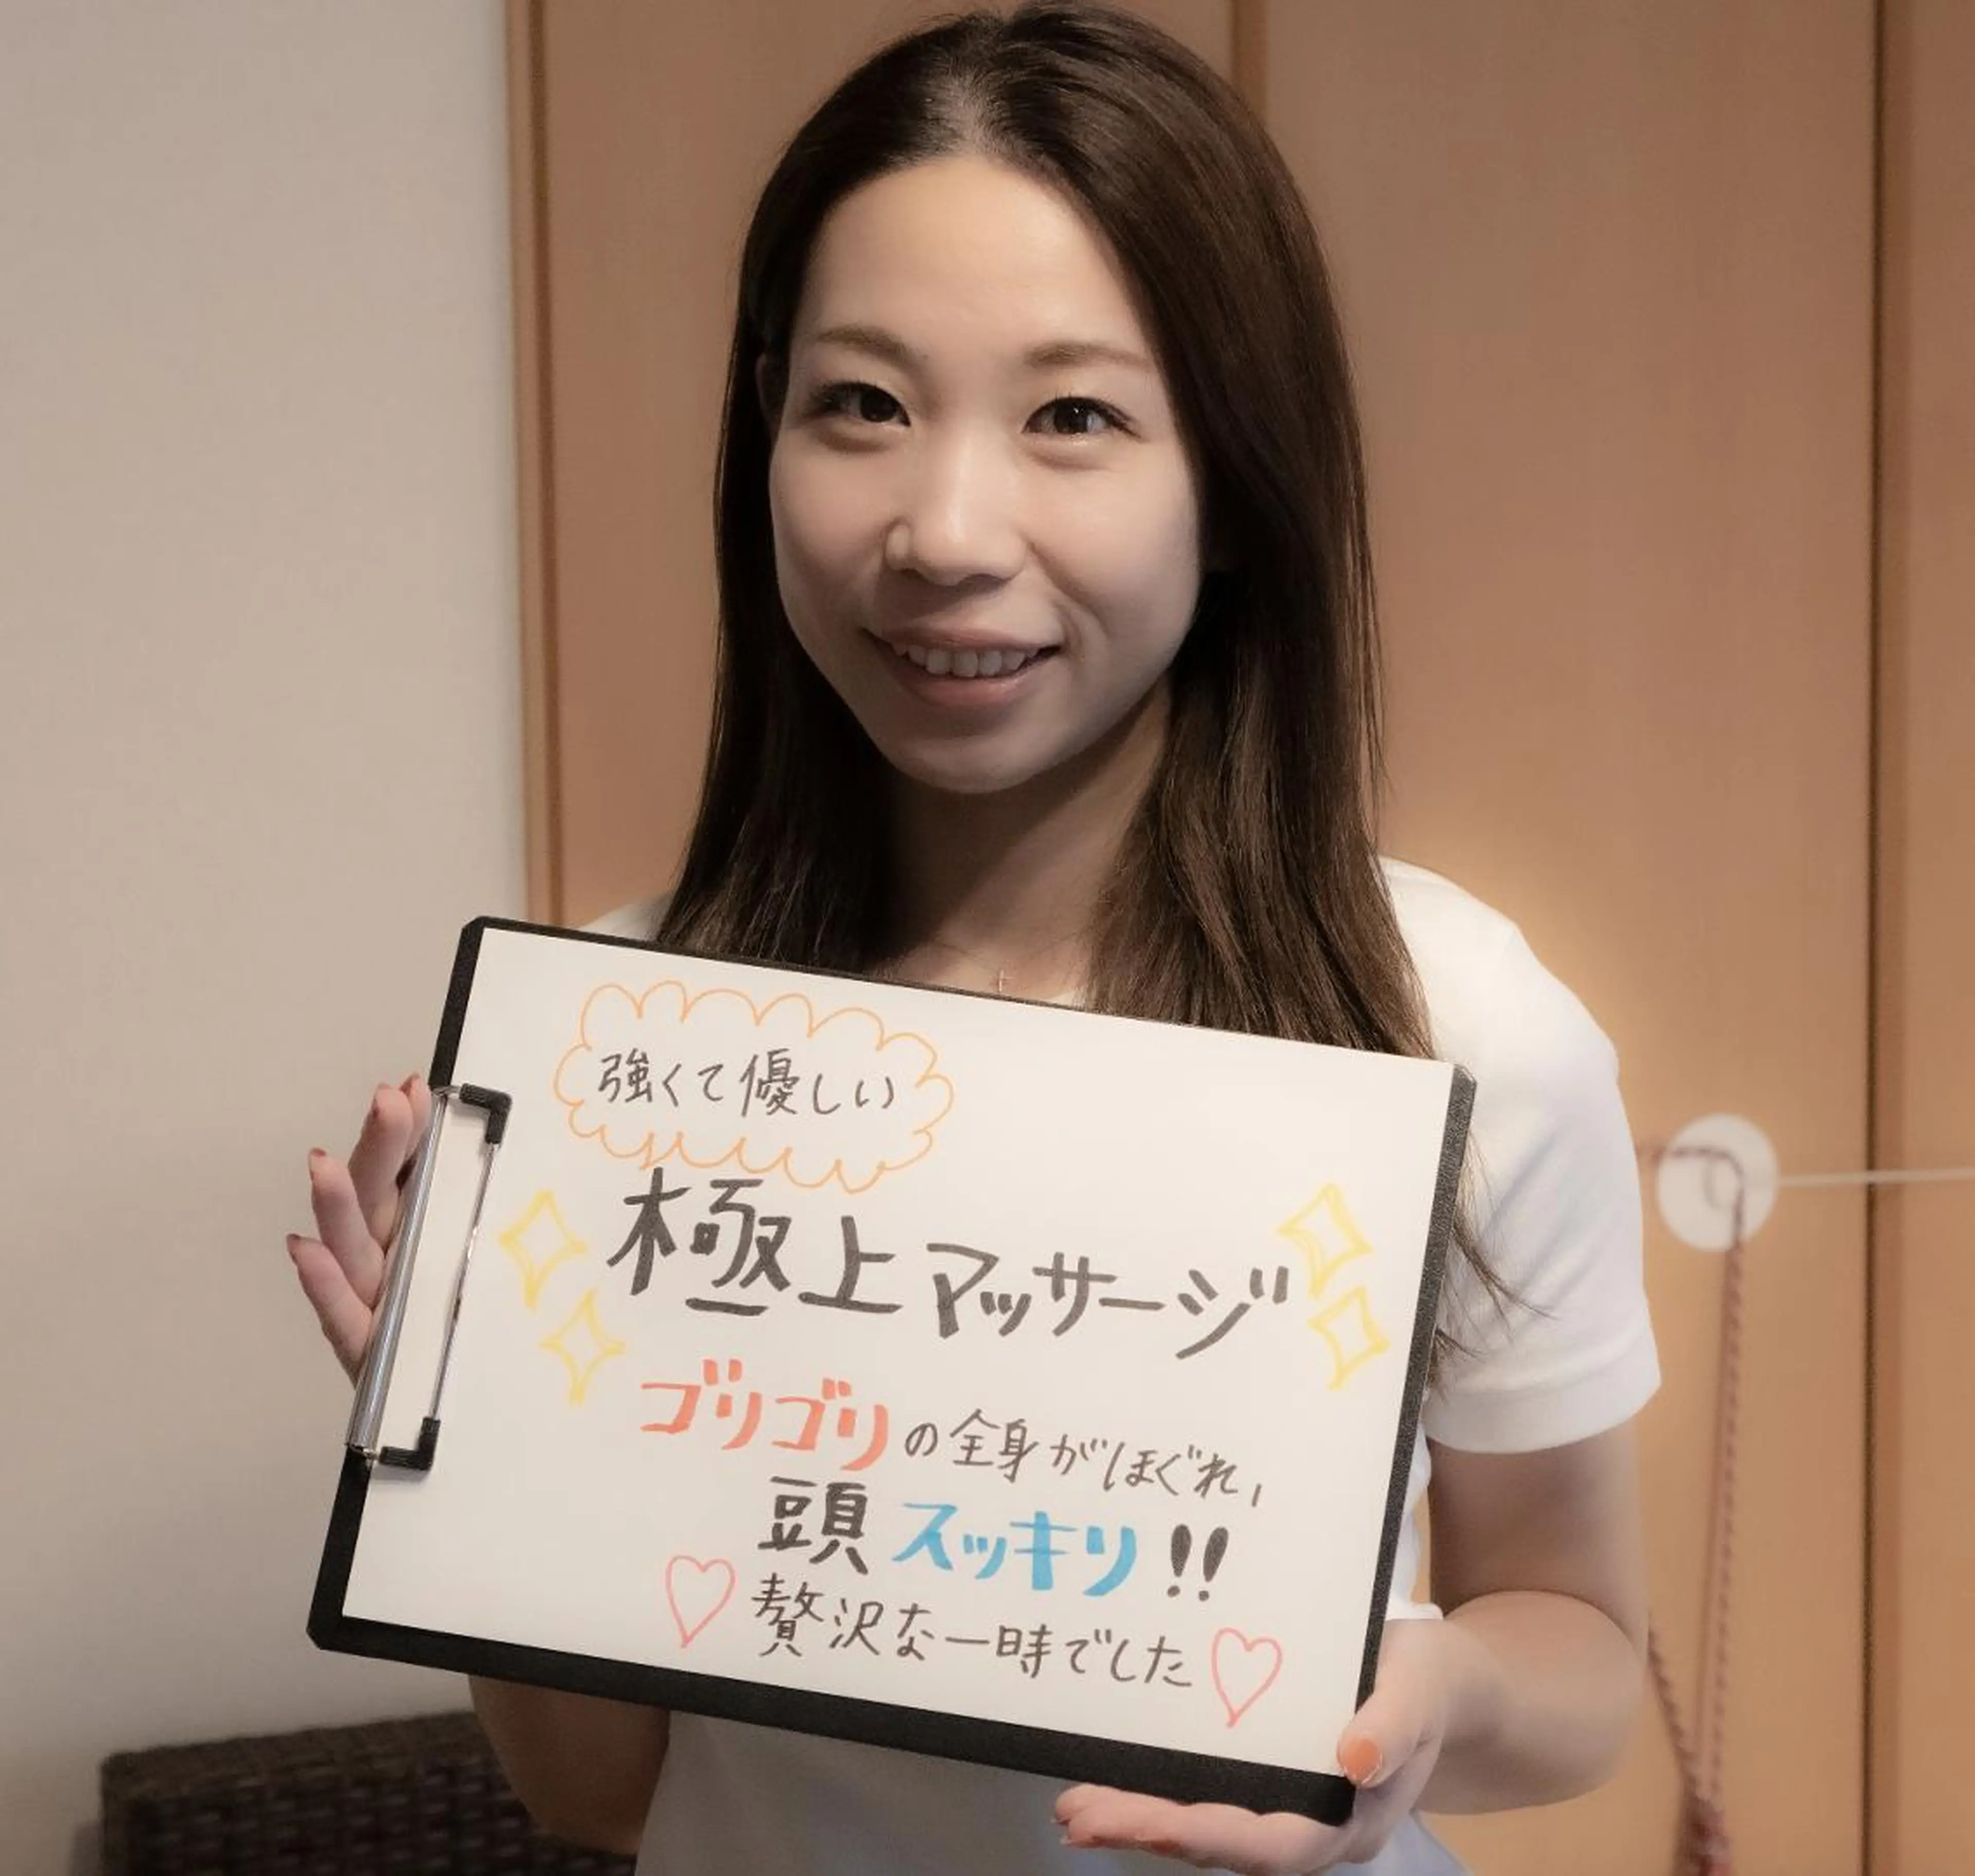 強くて優しい
極上マッサージ
ゴリゴリの全身がほぐれ、
頭スッキリ!!
贅沢な一時でした